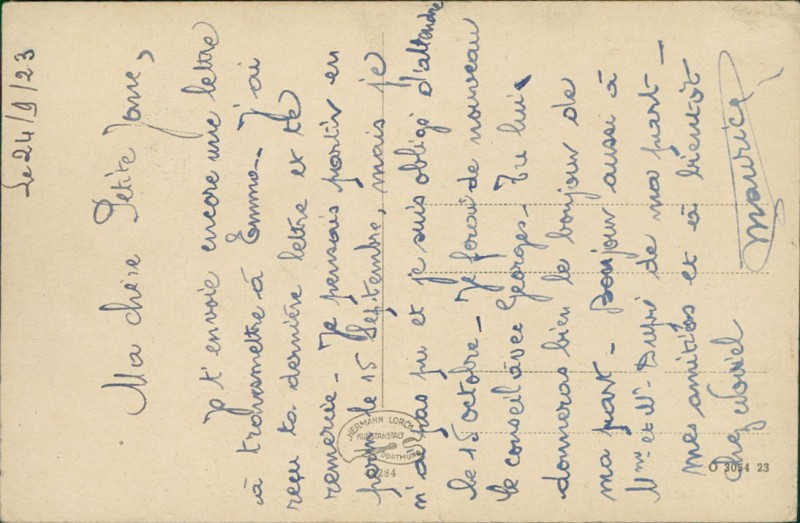 le 24/9/23
Ma chère Petite Jane,
Je t'envoie encore une lettre
à transmettre à Emma - J'ai
reçu ta dernière lettre et te
remercie - Je pensais partir en
perm le 15 Septembre, mais je
n'ai pas pu et je suis obligé d'attendre
le 15 octobre - Je ferai de nouveau
le conseil avec Georges - Tu lui
donneras bien le bonjour de
ma part - Bonjour aussi à
Mme et Mr de ma part -
mes amitiés et à bientôt
chez
Maurice
HERMANN LORCH
KUNSTANSTALT
DORTMUND
284
O 3054 23